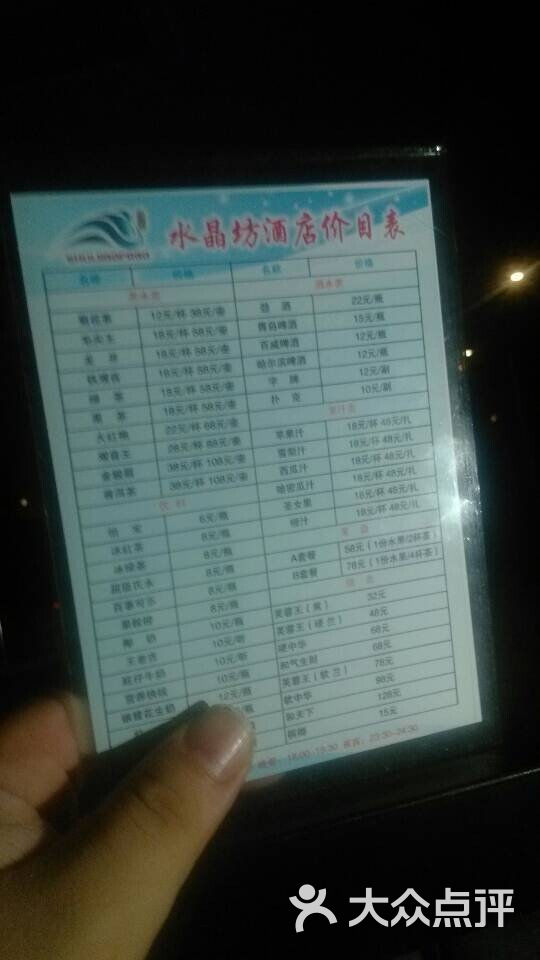 水晶坊酒店价目表
名称 价格 名称 价格
茶水类 酒水类
12元/杯 38元/壶
18元/杯 58元/壶
18元/杯 58元/壶
18元/杯 58元/壶
绿茶 18元/杯 58元/壶
18元/杯 58元/壶
大红袍 22元/杯 68元/壶
28元/杯 88元/壶
金骏眉 38元/杯 108元/壶
普洱茶 38元/杯 108元/壶
饮料
怡宝 6元/瓶
冰红茶 8元/瓶
冰绿茶 8元/瓶
8元/瓶
百事可乐 8元/瓶
8元/瓶
椰奶 10元/瓶
王老吉 10元/听
旺仔牛奶 10元/听
营养快线 10元/瓶
银鹭花生奶 12元/瓶
劲酒 22元/瓶
青岛啤酒 15元/瓶
百威啤酒 12元/瓶
哈尔滨啤酒 12元/瓶
字牌 12元/副
扑克 10元/副
果汁类
苹果汁 18元/杯 48元/扎
雪梨汁 18元/杯 48元/扎
西瓜汁 18元/杯 48元/扎
哈密瓜汁 18元/杯 48元/扎
圣女果 18元/杯 48元/扎
橙汁 18元/杯 48元/扎
套餐
A套餐 58元(1份水果/2杯茶)
B套餐 78元(1份水果/4杯茶)
芙蓉王(黄) 32元
芙蓉王(硬 兰) 48元
硬中华 68元
和气生财 68元
芙蓉王(软 兰) 78元
软中华 98元
和天下 128元
槟榔 15元
23:30-24:30
大众点评